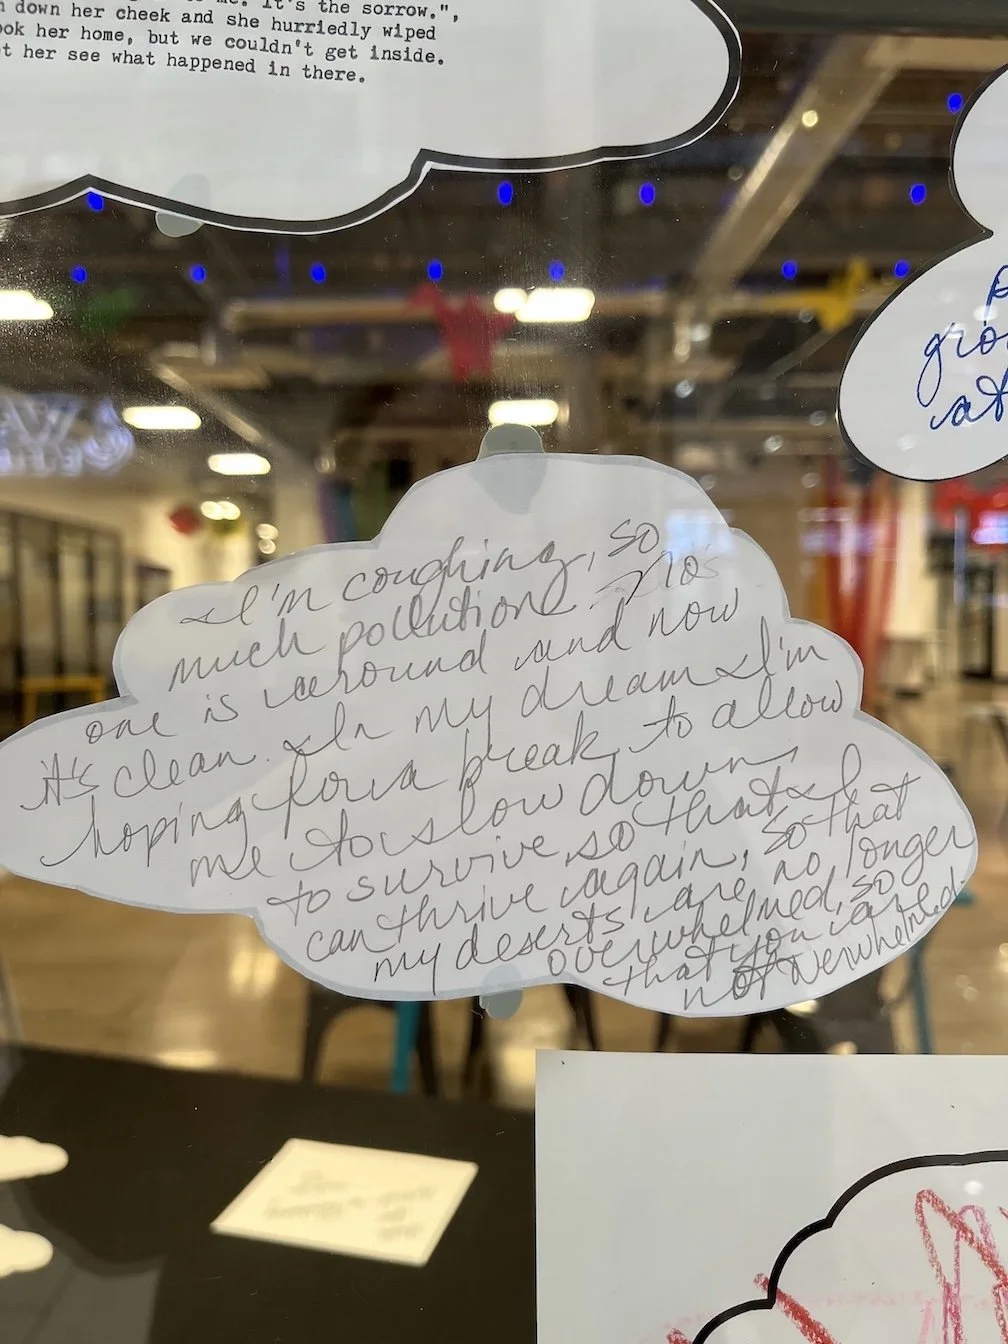 me. It's the sorrow.",
down her cheek and she hurriedly wiped
ook her home, but we couldn't get inside.
t her see what happened in there.
gro
at
I'm coughing, so
much pollution. No
one is around and now
it's clean. In my dream I'm
hoping for a break to allow
me to slow down,
to survive so that I
can thrive again, so that
my deserts are no longer
overwhelmed, so
that you are
not overwhelmed.